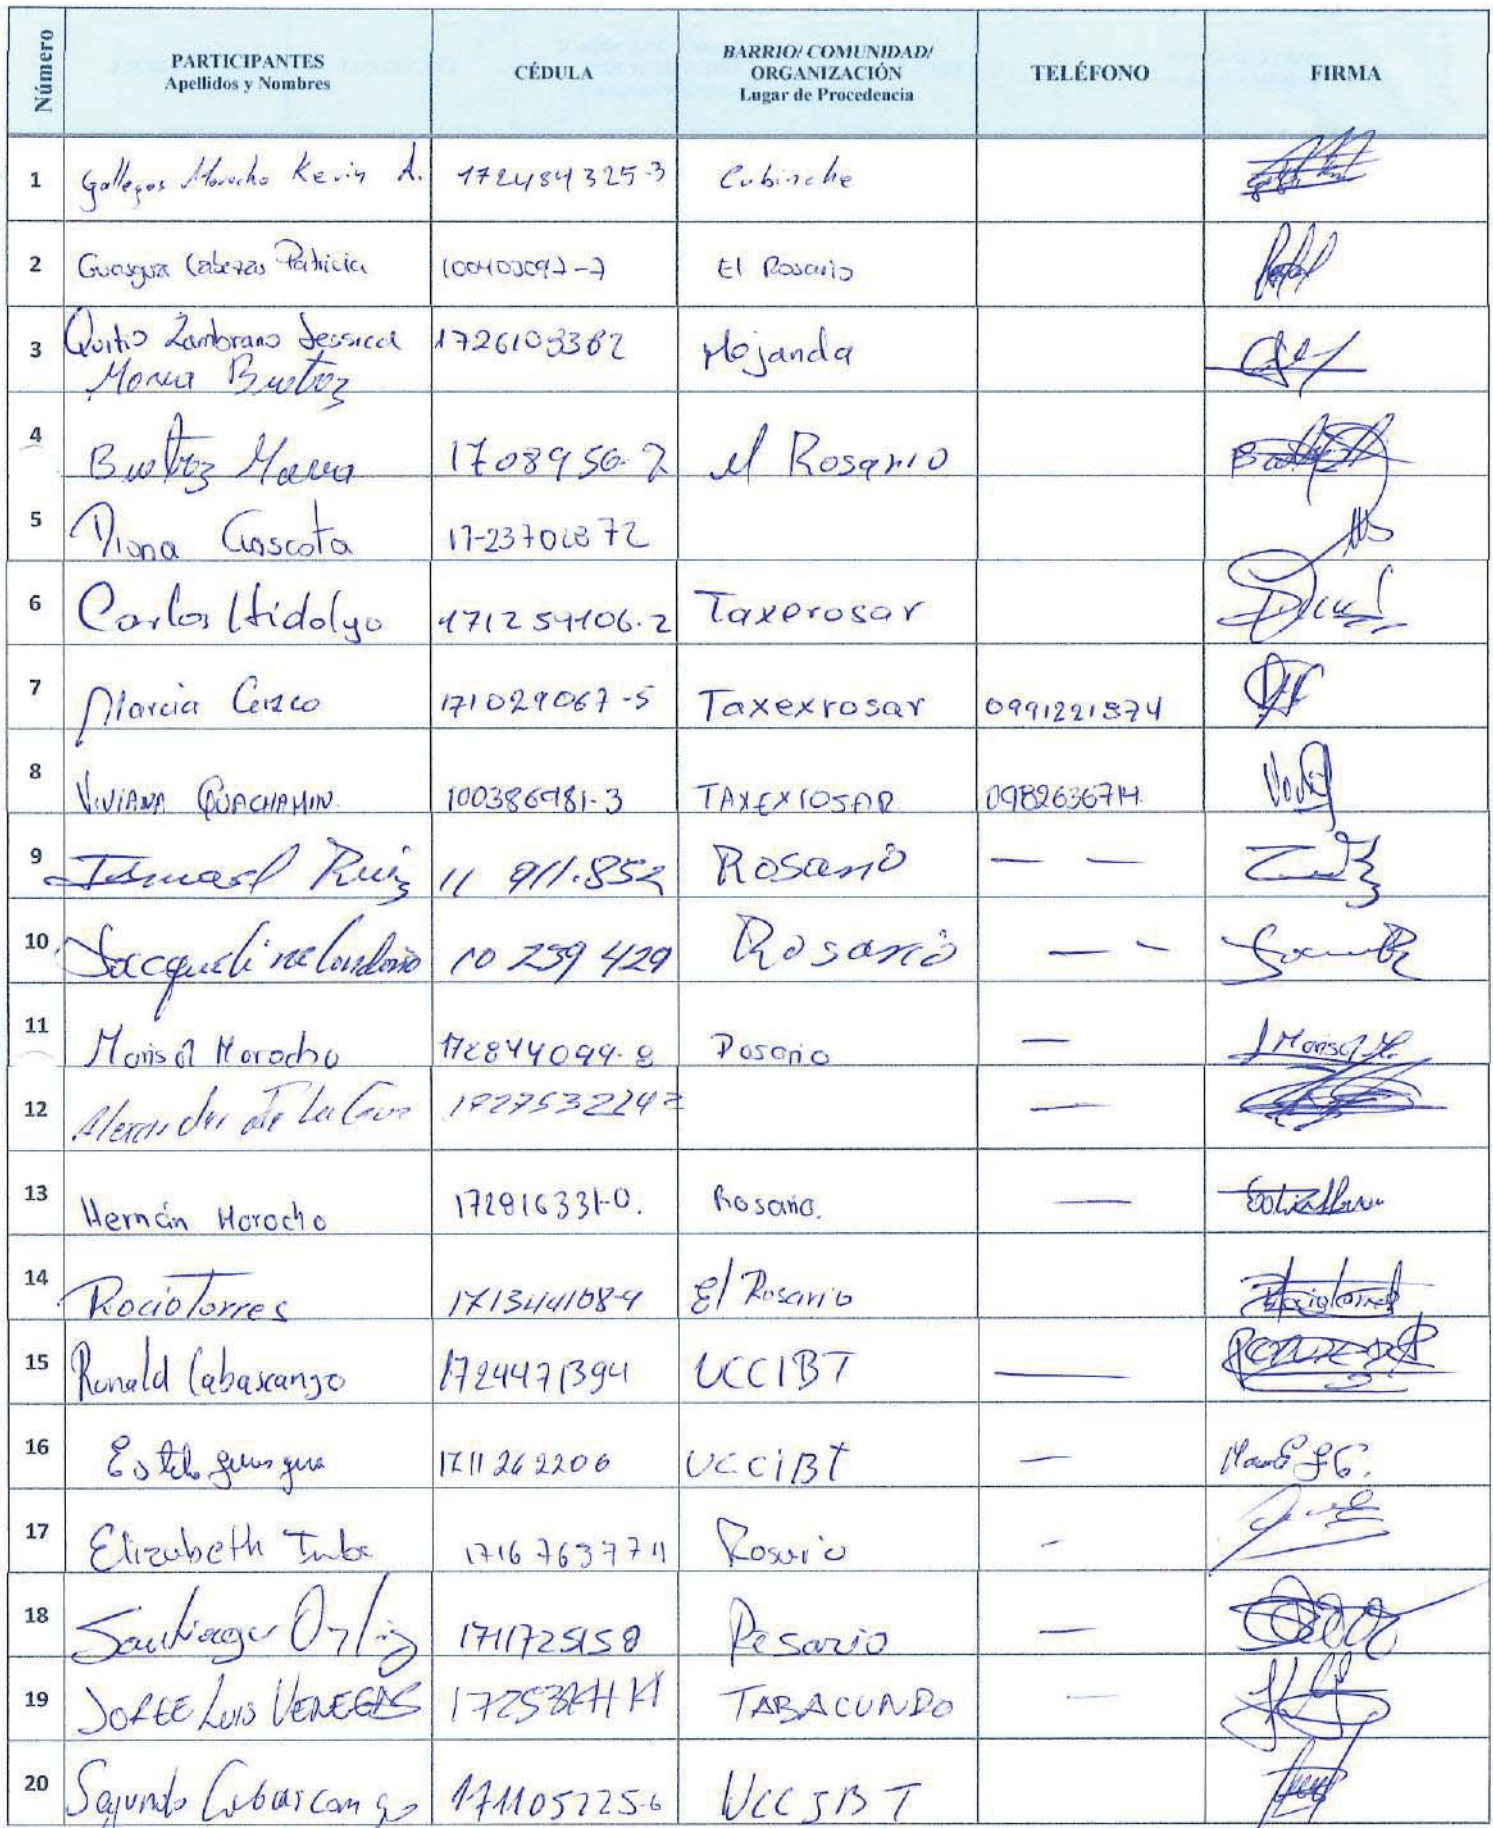 Número
PARTICIPANTES
Apellidos y Nombres
CÉDULA
BARRIO/ COMUNIDAD/
ORGANIZACIÓN
Lugar de Procedencia
TELÉFONO
FIRMA
1 Gallegos Morocho Kevin A. 172484325-3 Cubinche
2 Guasgua Cabezas Patricia El Rosario
3 Quitio Zambrano Jessica Mojanda
Maria
4 Maria 1708956-2 el Rosario
5 Diana
6 Carlos Hidalgo 171259106-2 Taxerosar
7 Marcia 171029067-5 Taxexrosar
8 VIVIANA GUACHAMIN 100386981-3 TAXEXROSAR
9 Ismael Ruiz 11 911.852 Rosario — —
10 Jacqueline Londoño 10 259 429 Rosario — -
11 Marisol Morocho 172844099-8 Rosario — Marisol M.
12 Alexander De La Cruz —
13 Hernán Morocho 172816331-0. Rosario. —
14 Rocio Torres 171344108-9 El Rosario Rocio Torres
15 Ronald Cabascango 1724471394 UCCIBT —
16 Estela guasgua 1711262206 UCCIBT —
17 Elizabeth Rosario -
18 Santiago Ortiz 1711725158 Rosario —
19 JORGE LUIS VENEGAS TABACUNDO —
20 Segundo Cabascango 171105225-6 UCCIBT